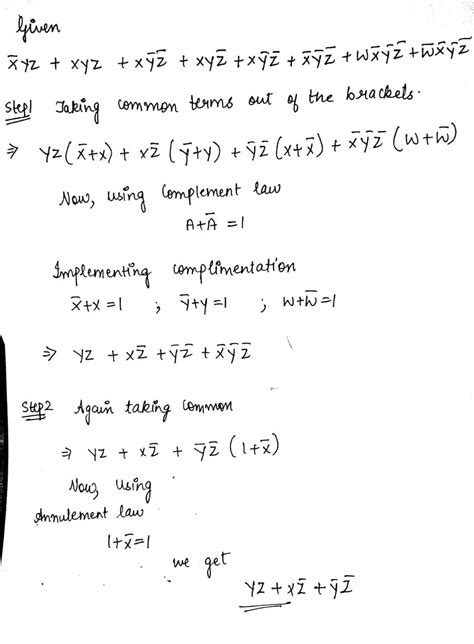 Given
x̅yz + xyz + xy̅z̅ + xyz̅ + xy̅z̅ + x̅y̅z̅ + wx̅y̅z̅ + w̅x̅y̅z̅
Step1 Taking common terms out of the brackets.
⇒ yz(x̅+x) + xz̅ (y̅+y) + y̅z̅ (x+x̅) + x̅y̅z̅ (w+w̅)
Now, using complement law
A+A̅ =1
Implementing complimentation
x̅+x =1 ; y̅+y =1 ; w+w̅ =1
⇒ yz + xz̅ + y̅z̅ + x̅y̅z̅
Step2 Again taking common
⇒ yz + xz̅ + y̅z̅ (1+x̅)
Now, using
Annulement law
1+x̅=1
we get
yz + xz̅ + y̅z̅